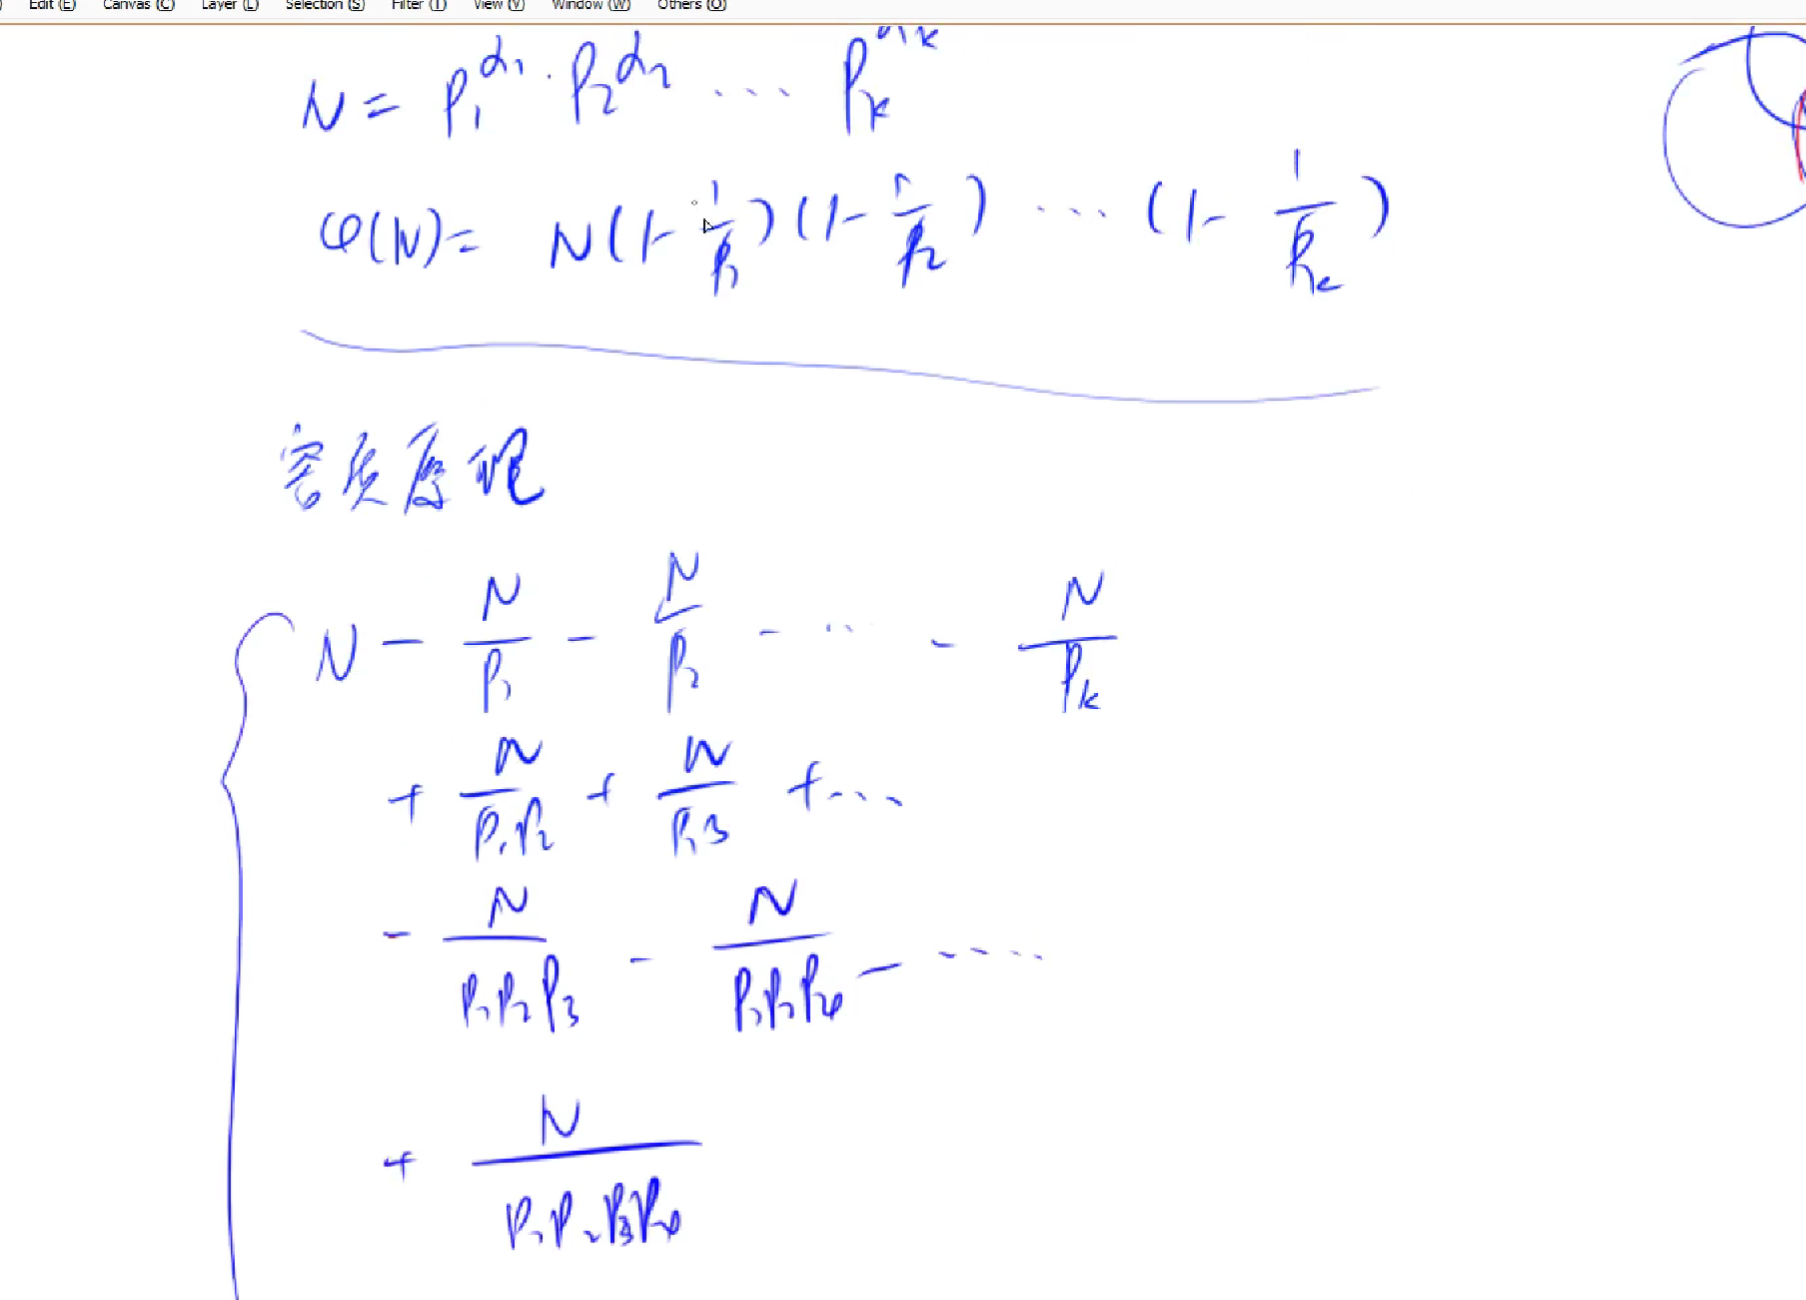 Edit (E) Canvas (C) Layer (L) Selection (S) Filter (T) View (V) Window (W) Others (O)
N = P₁^α₁ · P₂^α₂ ... Pₖ^αₖ
φ(N) = N(1 - 1/P₁)(1 - 1/P₂) ... (1 - 1/Pₖ)
容斥原理
N - N/P₁ - N/P₂ - ... - N/Pₖ
+ N/P₁P₂ + N/P₁P₃ + ...
- N/P₁P₂P₃ - N/P₁P₂P₄ - ....
+ N/P₁P₂P₃P₄